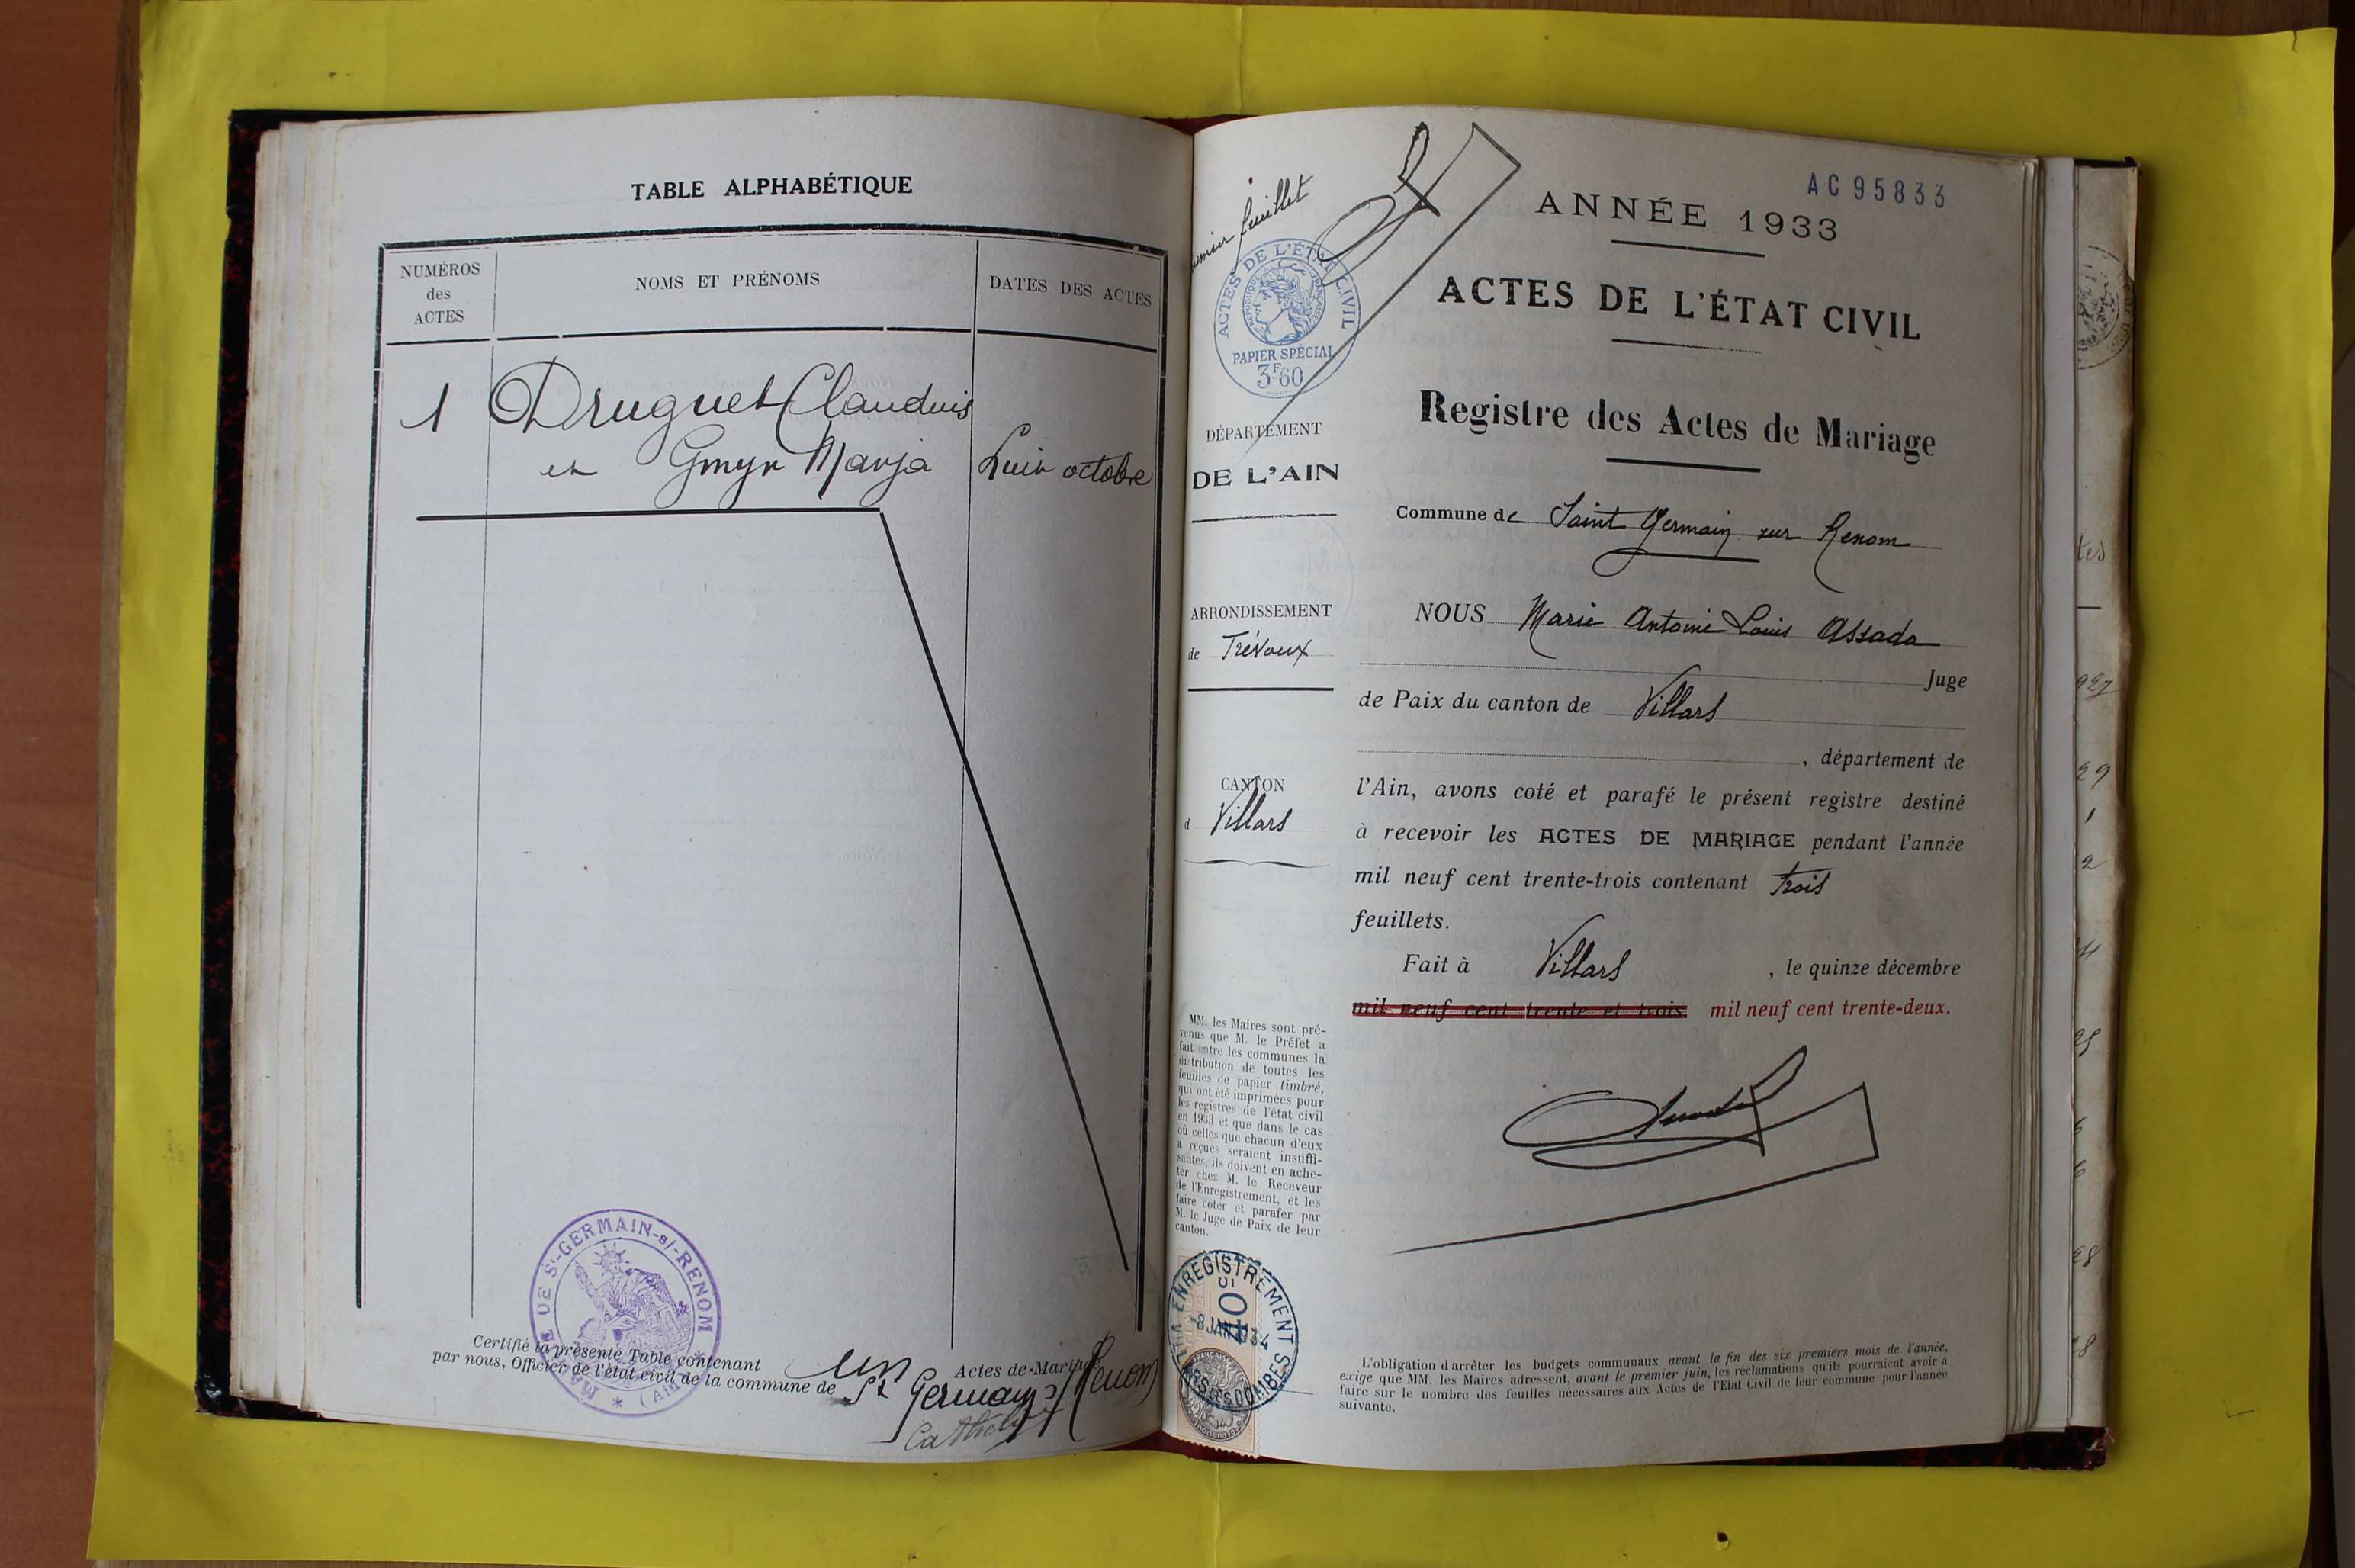 TABLE ALPHABÉTIQUE
NUMÉROS
des
ACTES
NOMS ET PRÉNOMS
DATES DES ACTES
1 Druguet Claudius
et Gmyr Marja
huit octobre
MAIRIE DE St-GERMAIN-s/-RENOM
* (Ain) *
Certifié la présente Table contenant un Actes de Mariage
par nous, Officier de l'état civil de la commune de St Germain s/ Renom
premier feuillet
ACTES DE L'ÉTAT CIVIL
RÉPUBLIQUE FRANÇAISE
PAPIER SPÉCIAL
3F60
DÉPARTEMENT
DE L'AIN
ARRONDISSEMENT
de Trévoux
CANTON
d Villars
MM. les Maires sont pré-
venus que M. le Préfet a
fait entre les communes la
distribution de toutes les
feuilles de papier timbré,
qui ont été imprimées pour
les registres de l'état civil
en 1933 et que dans le cas
où celles que chacun d'eux
a reçues seraient insuffi-
santes, ils doivent en ache-
ter chez M. le Receveur
de l'Enregistrement, et les
faire coter et parafer par
M. le Juge de Paix de leur
canton.
ENREGISTREMENT
40
-8 JAN 1934
DOMBES
AC95833
ANNÉE 1933
ACTES DE L'ÉTAT CIVIL
Registre des Actes de Mariage
Commune de Saint Germain sur Renom
NOUS Marie Antoine Louis Assada
Juge
de Paix du canton de Villars
, département de
l'Ain, avons coté et parafé le présent registre destiné
à recevoir les ACTES DE MARIAGE pendant l'année
mil neuf cent trente-trois contenant trois
feuillets.
Fait à Villars , le quinze décembre
mil neuf cent trente et trois mil neuf cent trente-deux.
L'obligation d'arrêter les budgets communaux avant la fin des six premiers mois de l'année,
exige que MM. les Maires adressent, avant le premier juin, les réclamations qu'ils pourraient avoir à
faire sur le nombre des feuilles nécessaires aux Actes de l'Etat Civil de leur commune pour l'année
suivante.